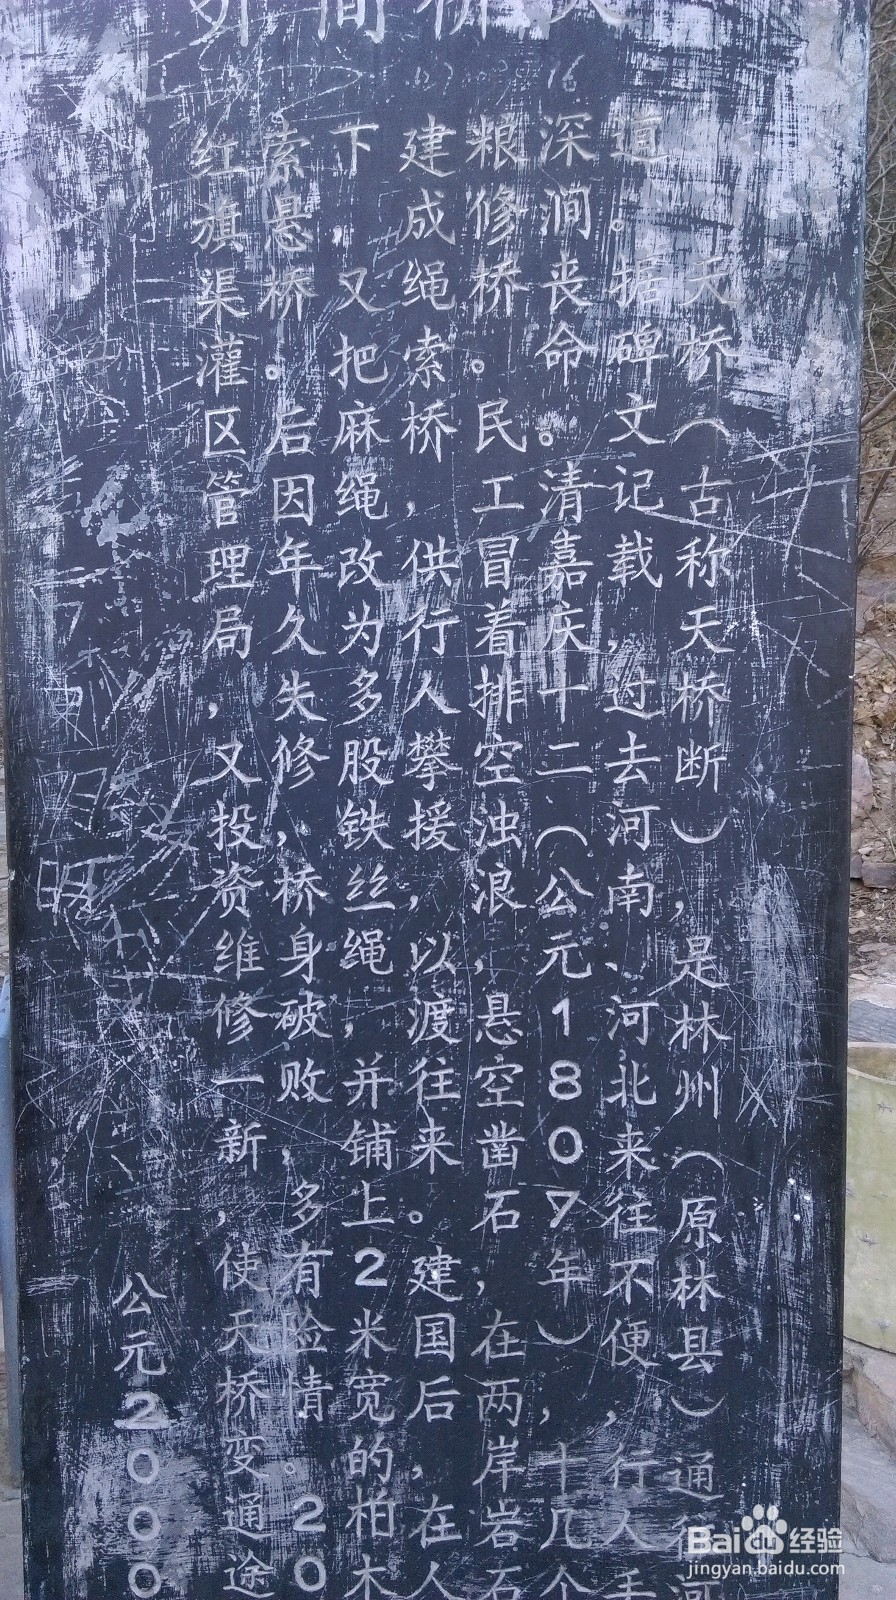 天桥（古称天桥断），是林州（原林县）通往河
道。据碑文记载，过去河南、河北来往不便，行人手
深涧丧命。清嘉庆十二（公元1807年），十几个
粮修桥。民工冒着排空浊浪，悬空凿石，在两岸岩石
建成绳索桥，供行人攀援，以渡往来。建国后，在人
下，又把麻绳改为多股铁丝绳，并铺上2米宽的柏木
索悬桥。后因年久失修，桥身破败，多有险情。20
红旗渠灌区管理局，又投资维修一新，使天桥变通途
公元2000
Baidu经验
jingyan.baidu.com